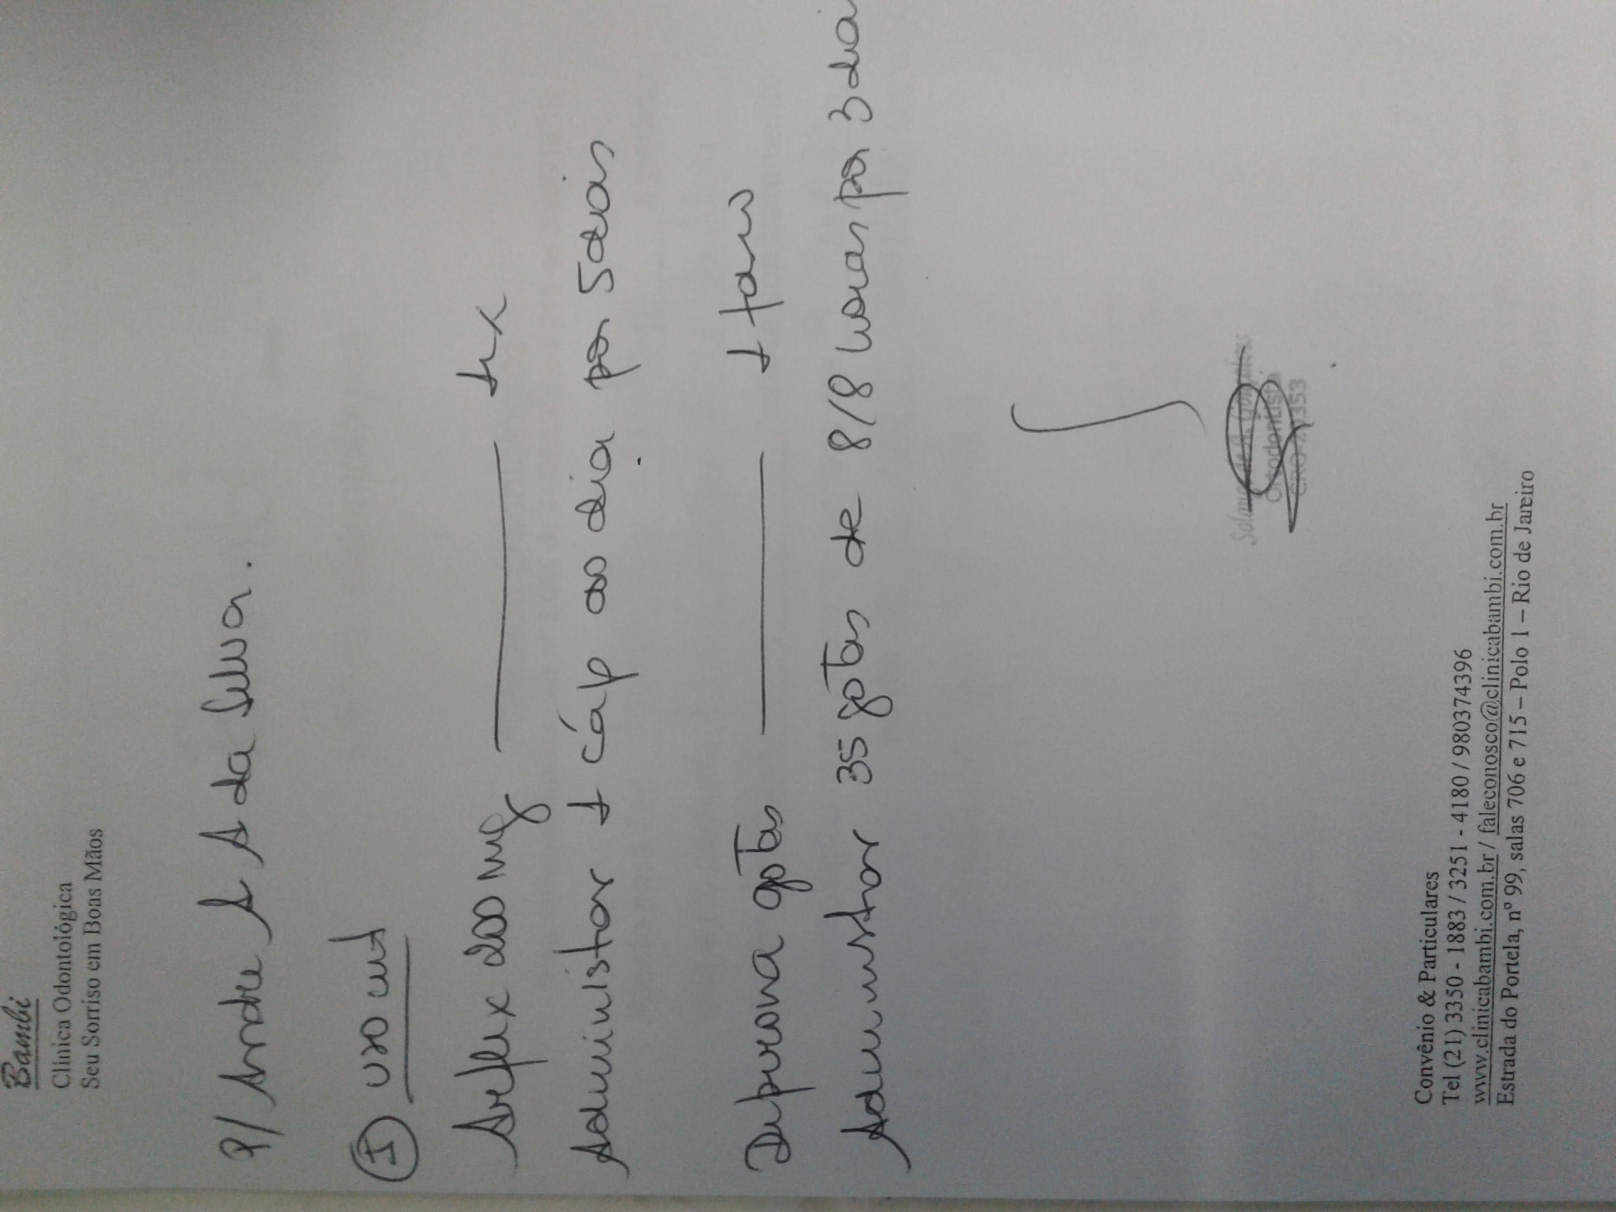 Bambi
Clínica Odontológica
Seu Sorriso em Boas Mãos
P/ Andre A A da Silva.
I uso int
Arflex 200 mg — 1 cx
Administrar 1 cáp ao dia por 5 dias
Dipirona gotas — 1 fras
Administrar 35 gotas de 8/8 horas por 3 dia
Ortodontista
Convênio & Particulares
Tel (21) 3350 - 1883 / 3251 - 4180 / 980374396
www.clinicabambi.com.br / faleconosco@clinicabambi.com.br
Estrada do Portela, nº 99, salas 706 e 715 – Polo 1 – Rio de Janeiro